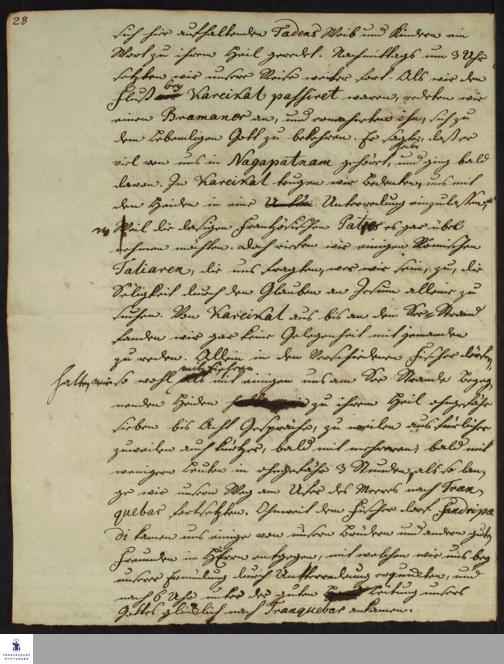 28
sich hier aufhaltenden Tadens Weib und Kindern ein
Wort zu ihrem Heil geredet. Nachmittags um 3 Uhr
setzten wir unsere Reise weiter fort. Als wir den
Fluß bey Kareikal passiret waren, redeten wir
einen Bramaner an, und ermahnten ihn, sich zu
dem lebendigen Gott zu bekehren. Er sagte, daß er
viel von uns in Nagapatnam gehört habe, und ging bald
davon. In Kareikal trugen wir Bedenken, uns mit
den Heiden in eine Unterredung einzulassen,
Weil die dasigen Französischen Patres es gar übel
nehmen möchten. Doch riefen wir einigen Römischen
Taliaren, die uns fragten, wer wir sein, zu, die
Seligkeit durch den Glauben an Jesum alleine zu
suchen. Von Kareikal aus bis an den See-Strand
fanden wir gar keine Gelegenheit mit jemanden
zu reden. Allein in den verschiedenen Fischer dörfern,
hatten wir so wohl als mit einigen uns am See Strande begeg-
nenden Heiden zu ihrem Heil ohngefähr
sieben bis acht Gespräche, zu weilen ausführlicher
zuweilen auch kürtzer, bald mit mehreren, bald mit
wenigern Leuten in ohngefähr 3 Stunden, als so lan-
ge wir unsern Weg am Ufer des Meeres nach Tran-
quebar fortsetzten. Ohnweit dem Fischer dorf Sandripa
di kamen uns einige von unsern Brüdern und andern guten
Freunden im HErrn entgegen, mit welchen wir uns bey
unserer Ermüdung durch Unterredung erquickten, und
nach 6 Uhr unter der guten Leitung unsers
Gottes glücklich nach Tranquebar ankamen.
FRANCKESCHE
STIFTUNGEN